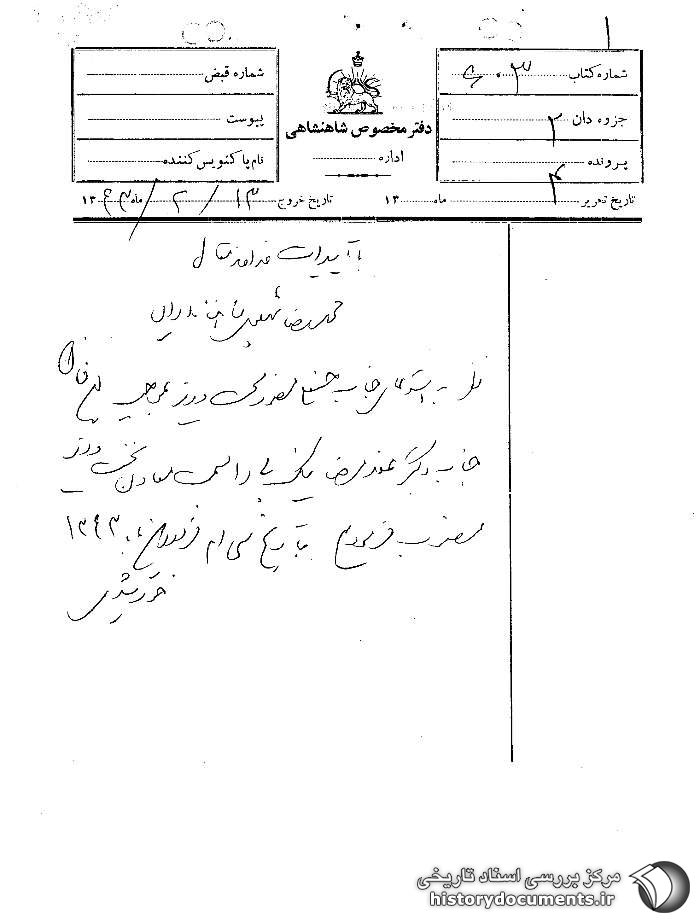 شماره کتاب ۶۰۳
جزوه دان ۲
پرونده ۴
تاریخ تحریر ماه ۱۳
دفتر مخصوص شاهنشاهی
اداره
شماره قبض
پیوست
نام پاکنویس کننده
تاریخ خروج ۱۳ / ۲ / ماه ۱۳۴۳
با تأییدات خداوند متعال
محمدرضا پهلوی شاهنشاه ایران
نظر به استدعای جناب نخست وزیر
جناب دکتر را بسمت معاون نخست وزیر
منصوب فرمودیم بتاریخ سی ام فروردین ماه ۱۳۴۳
مرکز بررسی اسناد تاریخی
historydocuments.ir